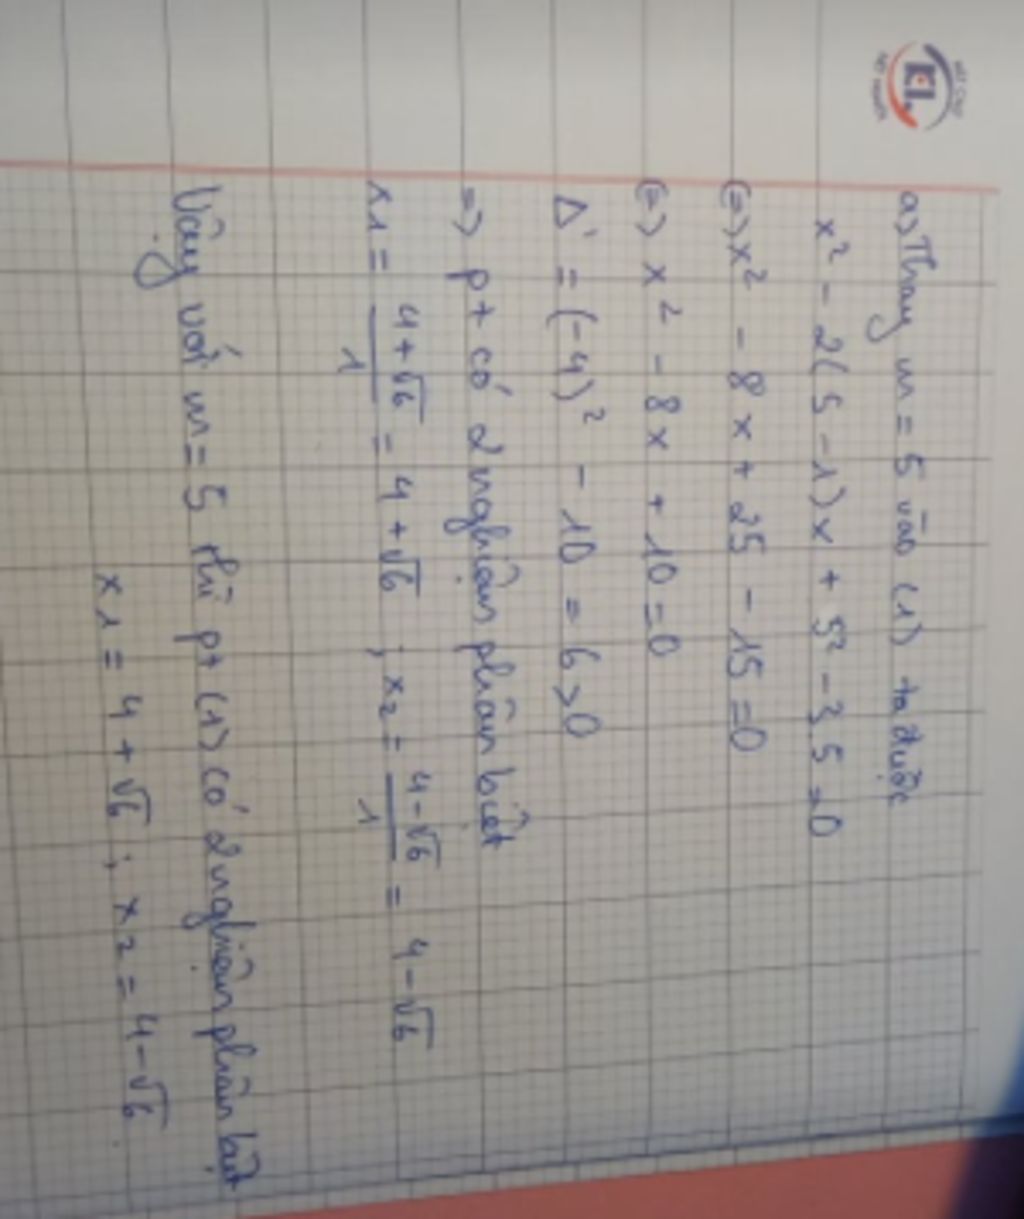 EL
a) Thay m = 5 vào (1) ta được
x² - 2(5 - 1)x + 5² - 3.5 = 0
(=) x² - 8x + 25 - 15 = 0
(=) x² - 8x + 10 = 0
Δ' = (-4)² - 10 = 6 > 0
=> pt có 2 nghiệm phân biệt
x1 = 4+√6/1 = 4 + √6 ; x2 = 4-√6/1 = 4 - √6
Vậy với m = 5 thì pt (1) có 2 nghiệm phân biệt
x1 = 4 + √6 ; x2 = 4 - √6